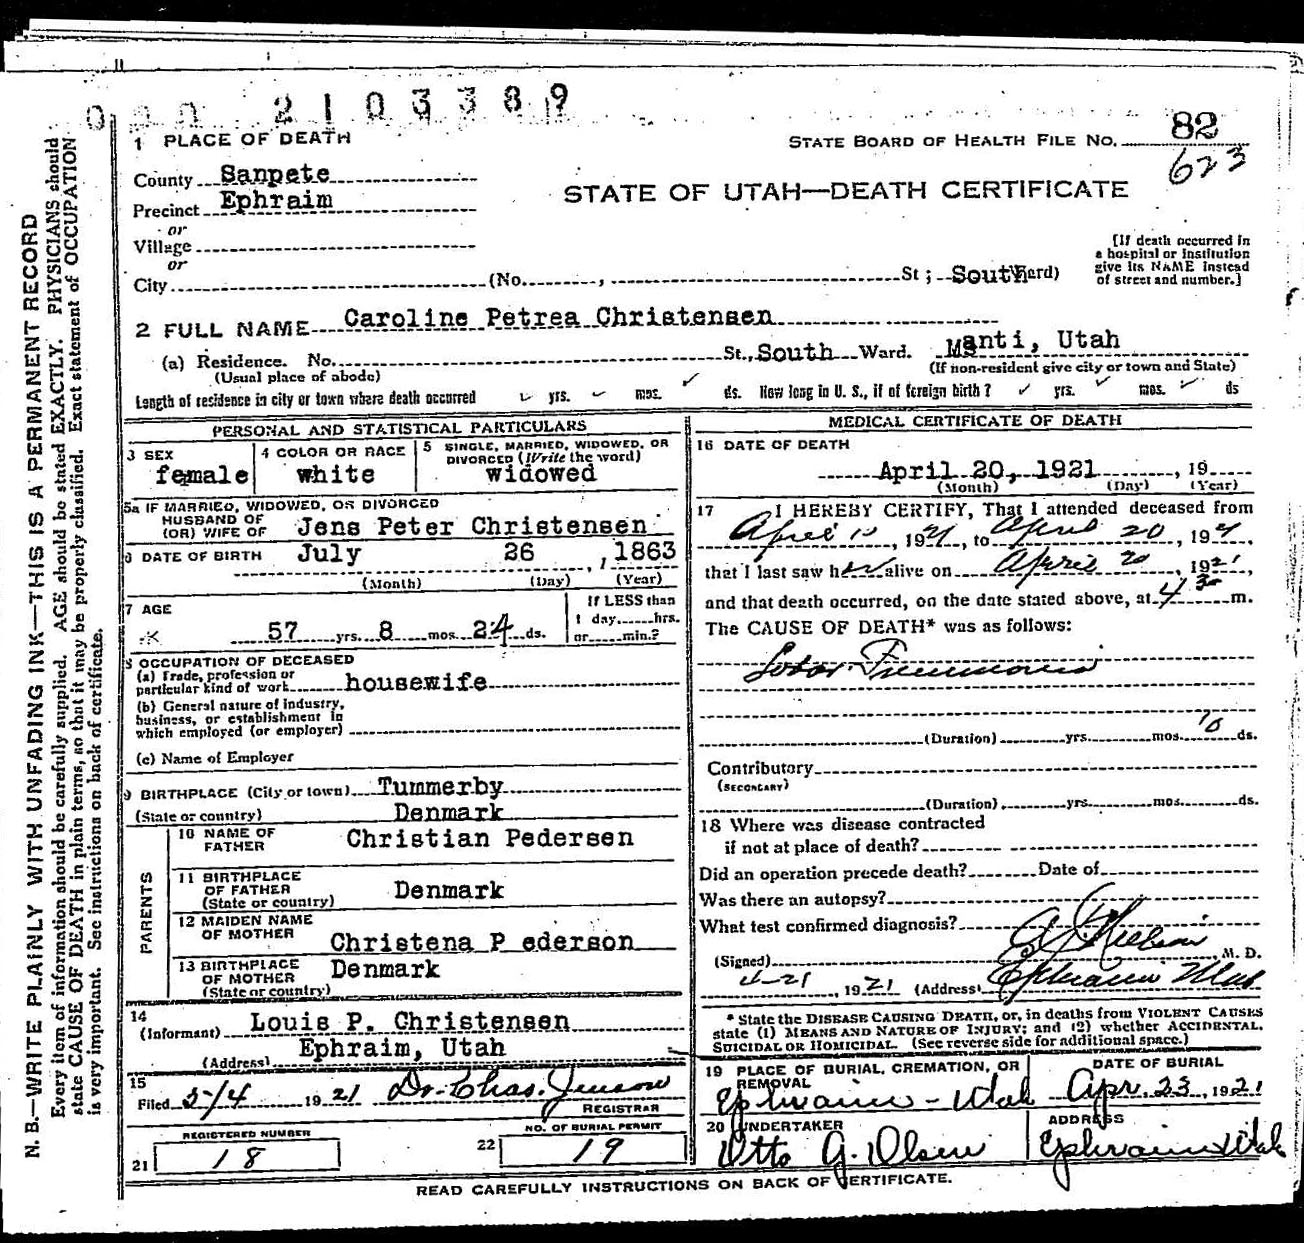 2103389
1 PLACE OF DEATH
STATE BOARD OF HEALTH FILE No. 82
623
County Sanpete
STATE OF UTAH—DEATH CERTIFICATE
Precinct Ephraim
or
Village
or
City (No. , St; South Ward)
[If death occurred in
a hospital or institution
give its NAME instead
of street and number.]
2 FULL NAME Caroline Petrea Christensen
(a) Residence. No. St., South Ward. Manti, Utah
(Usual place of abode) (If non-resident give city or town and State)
Length of residence in city or town where death occurred yrs. mos. ds. How long in U. S., if of foreign birth? yrs. mos. ds
PERSONAL AND STATISTICAL PARTICULARS
3 SEX
female
4 COLOR OR RACE
white
5 SINGLE, MARRIED, WIDOWED, OR
DIVORCED (Write the word)
widowed
5a IF MARRIED, WIDOWED, OR DIVORCED
HUSBAND OF
(OR) WIFE OF Jens Peter Christensen
6 DATE OF BIRTH July 26, 1863
(Month) (Day) (Year)
7 AGE
57 yrs. 8 mos. 24 ds.
If LESS than
1 day, hrs.
or min.?
8 OCCUPATION OF DECEASED
(a) Trade, profession or
particular kind of work housewife
(b) General nature of industry,
business, or establishment in
which employed (or employer)
(c) Name of Employer
9 BIRTHPLACE (City or town) Tummerby
(State or country) Denmark
PARENTS
10 NAME OF
FATHER Christian Pedersen
11 BIRTHPLACE
OF FATHER
(State or country) Denmark
12 MAIDEN NAME
OF MOTHER Christena P ederson
13 BIRTHPLACE
OF MOTHER
(State or country) Denmark
14
(Informant) Louis P. Christensen
(Address) Ephraim, Utah
15
Filed 5/4 1921 Dr. Chas. Jenson
REGISTRAR
REGISTERED NUMBER
21 18
NO. OF BURIAL PERMIT
22 19
MEDICAL CERTIFICATE OF DEATH
16 DATE OF DEATH
April 20, 1921, 19
(Month) (Day) (Year)
17 I HEREBY CERTIFY, That I attended deceased from
April 10, 1921, to April 20, 1921,
that I last saw her alive on April 20, 1921,
and that death occurred, on the date stated above, at 4 30 m.
The CAUSE OF DEATH* was as follows:
Lobar Pneumonia
(Duration) yrs. mos. 10 ds.
Contributory
(SECONDARY)
(Duration) yrs. mos. ds.
18 Where was disease contracted
if not at place of death?
Did an operation precede death? Date of
Was there an autopsy?
What test confirmed diagnosis?
(Signed) Nielson, M. D.
4-21, 1921 (Address) Ephraim Utah
* State the DISEASE CAUSING DEATH, or, in deaths from VIOLENT CAUSES
state (1) MEANS AND NATURE OF INJURY; and (2) whether ACCIDENTAL,
SUICIDAL OR HOMICIDAL. (See reverse side for additional space.)
19 PLACE OF BURIAL, CREMATION, OR
REMOVAL
Ephraim - Utah
DATE OF BURIAL
Apr. 23, 1921
20 UNDERTAKER
Otto G. Olsen
ADDRESS
Ephraim Utah
READ CAREFULLY INSTRUCTIONS ON BACK OF CERTIFICATE.
N. B.—WRITE PLAINLY WITH UNFADING INK—THIS IS A PERMANENT RECORD
Every item of information should be carefully supplied. AGE should be stated EXACTLY. PHYSICIANS should
state CAUSE OF DEATH in plain terms, so that it may be properly classified. Exact statement of OCCUPATION
is very important. See instructions on back of certificate.